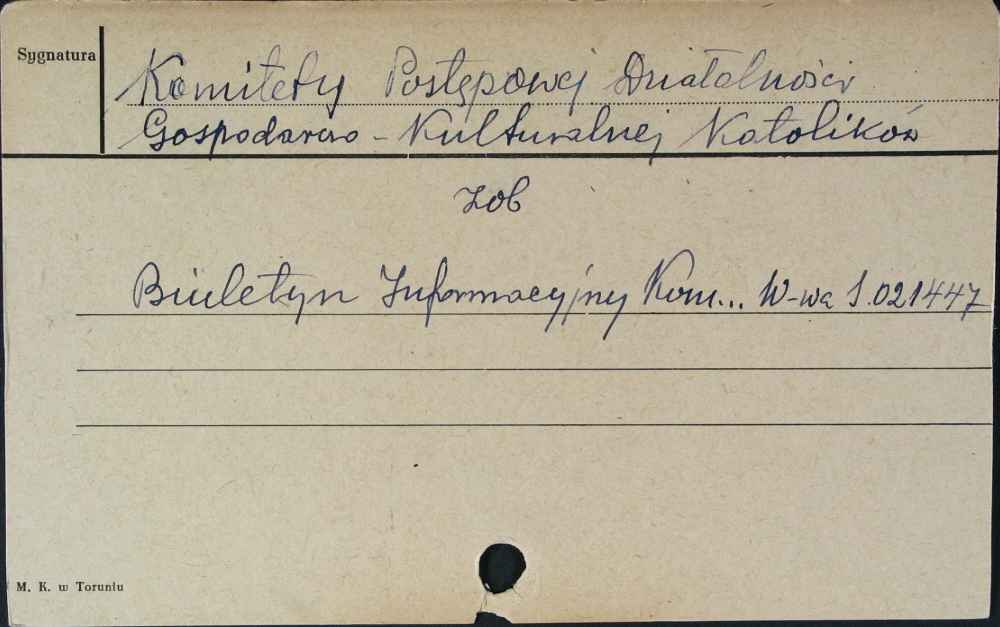 Sygnatura
Komitety Postępowej Działalności
Gospodarczo - Kulturalnej Katolików
zob
Biuletyn Informacyjny Kom... W-wa S.021447
M. K. w Toruniu